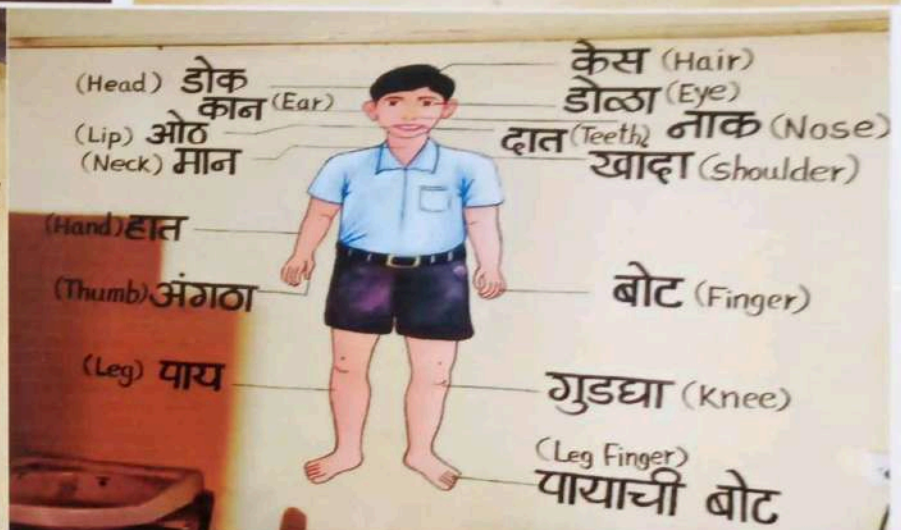 (Head) डोक
कान (Ear)
(Lip) ओठ
(Neck) मान
(Hand) हात
(Thumb) अंगठा
(Leg) पाय
केस (Hair)
डोळा (Eye)
नाक (Nose)
दात (Teeth)
खादा (shoulder)
बोट (Finger)
गुडघा (Knee)
(Leg Finger)
पायाची बोट